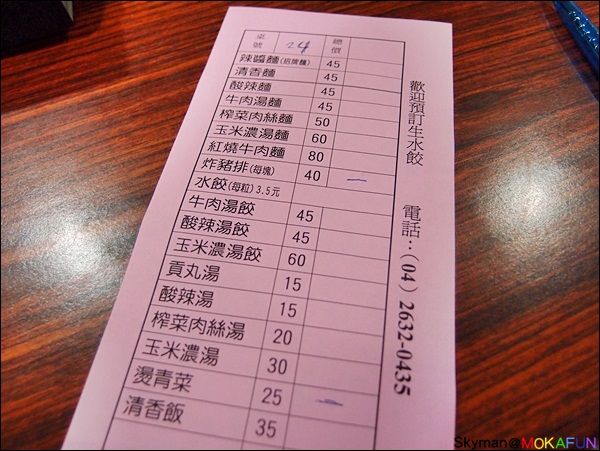 桌號 24 總價
辣醬麵(招牌麵) 45
清香麵 45
酸辣麵 45
牛肉湯麵 45
榨菜肉絲麵 50
玉米濃湯麵 60
紅燒牛肉麵 80
炸豬排(每塊) 40 一
水餃(每粒)3.5元
牛肉湯餃 45
酸辣湯餃 45
玉米濃湯餃 60
貢丸湯 15
酸辣湯 15
榨菜肉絲湯 20
玉米濃湯 30
燙青菜 25 一
清香飯 35
歡迎預訂生水餃 電話：(04) 2632-0435
Skyman@MOKAFUN